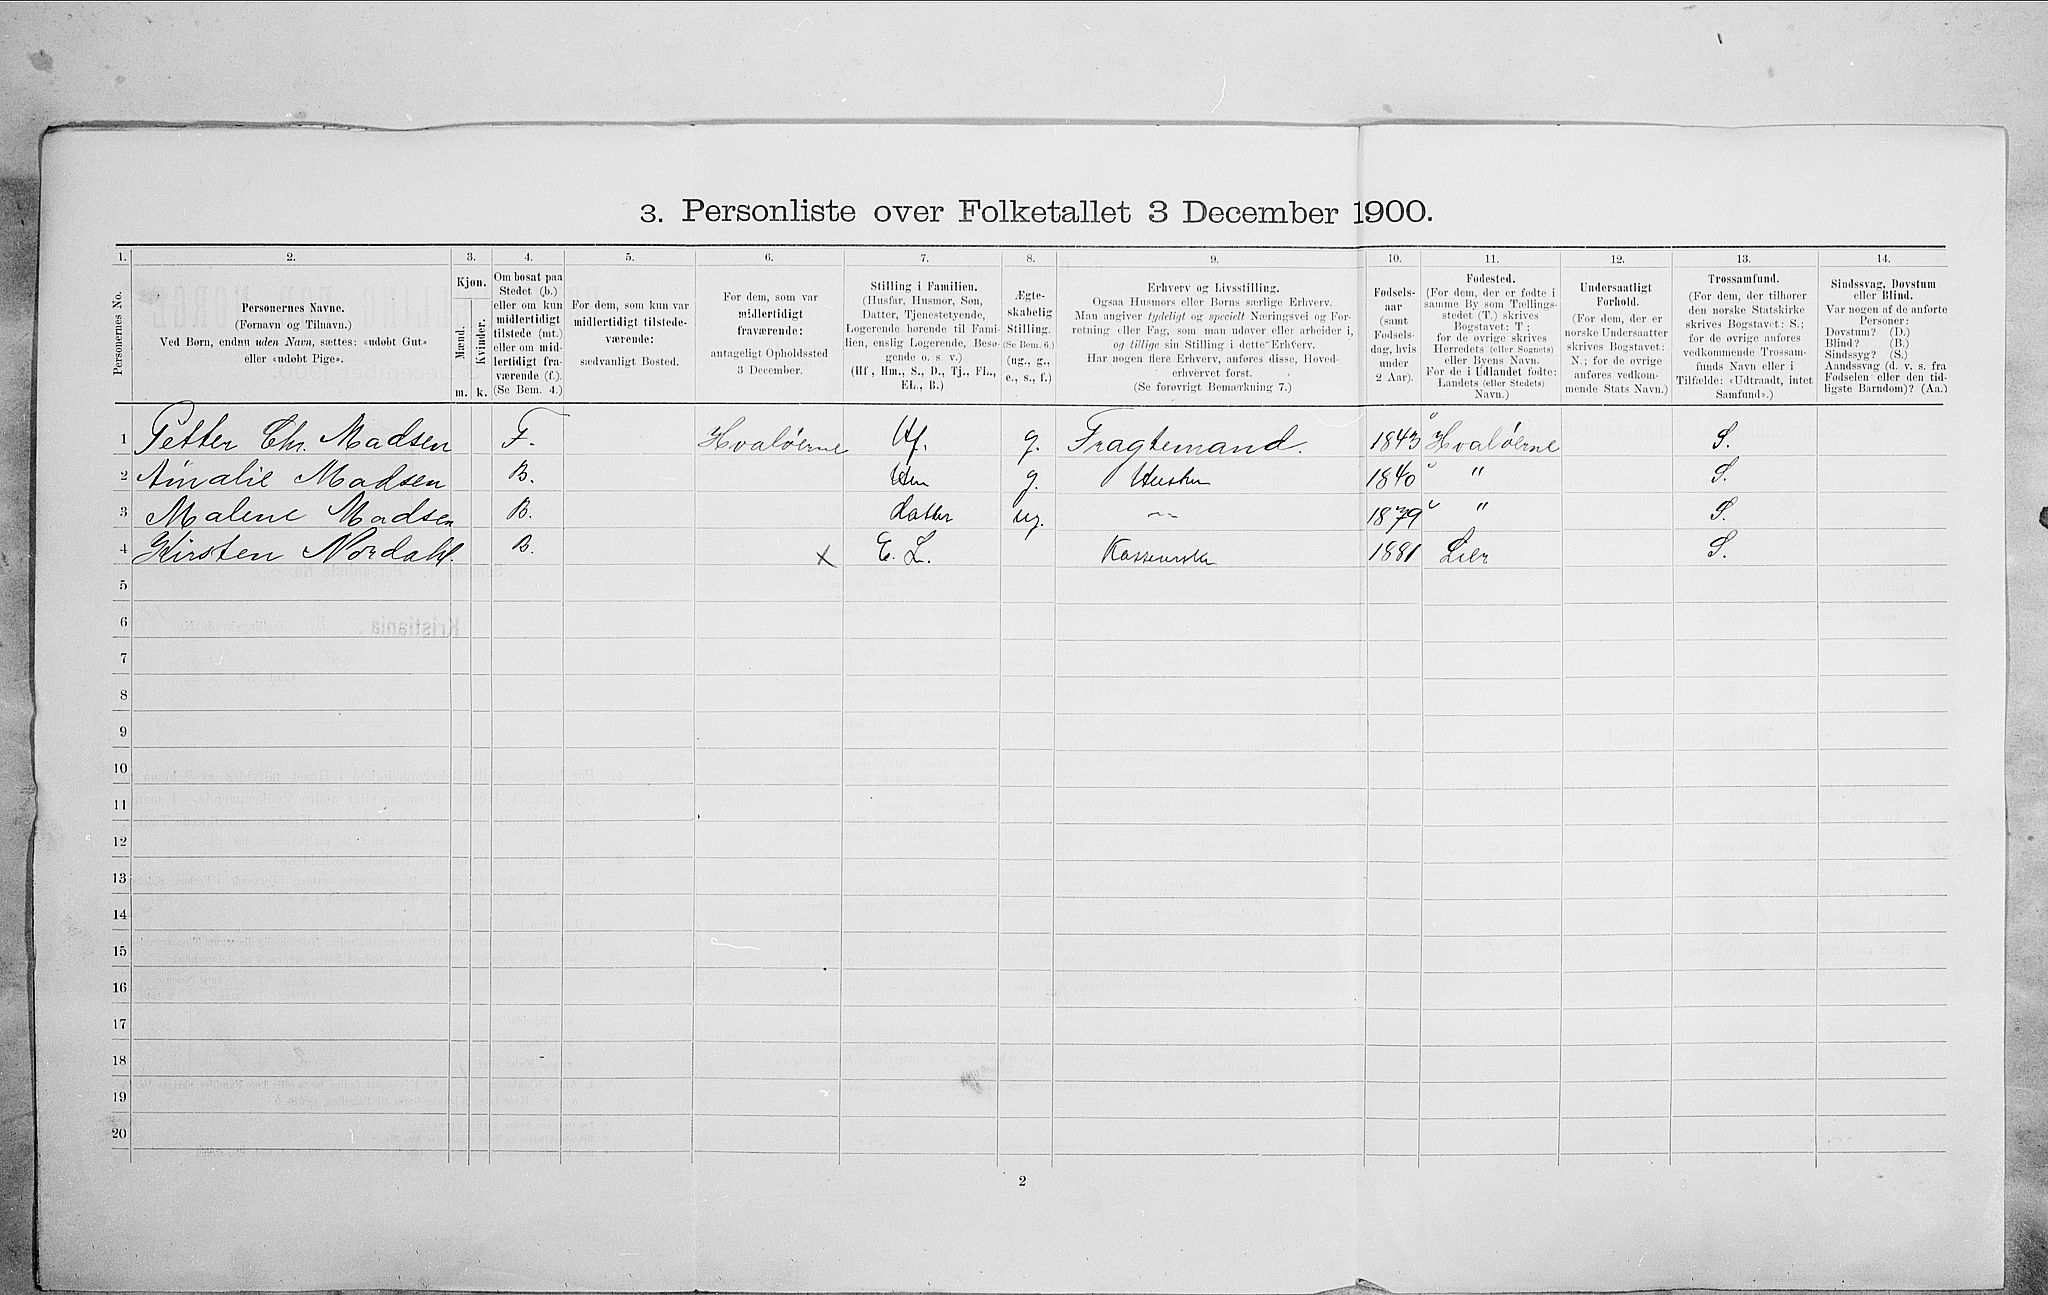 3. Personliste over Folketallet 3 December 1900.
1. 2. 3. 4. 5. 6. 7. 8. 9. 10. 11. 12. 13. 14.
Personernes No.
Personernes Navne.
(Fornavn og Tilnavn.)
Ved Børn, endnu uden Navn, sættes: «udøbt Gut»
eller «udøbt Pige».
Kjøn.
Mænd.
Kvinder.
m. k.
Om bosat paa
Stedet (b.)
eller om kun
midlertidigt
tilstede (mt.)
eller om mid-
lertidigt fra-
værende (f.).
(Se Bem. 4.)
For dem, som kun var
midlertidigt tilstede-
værende:
sædvanligt Bosted.
For dem, som var
midlertidigt
fraværende:
antageligt Opholdssted
3 December.
Stilling i Familien.
(Husfar, Husmor, Søn,
Datter, Tjenestetyende,
Logerende hørende til Fami-
lien, enslig Logerende, Besø-
gende o. s. v.)
(Hf., Hm., S., D., Tj., FL.,
EL., B.)
Ægte-
skabelig
Stilling.
(Se Bem. 6.)
(ug., g.,
e., s., f.)
Erhverv og Livsstilling.
Ogsaa Husmors eller Børns særlige Erhverv.
Man angiver tydeligt og specielt Næringsvei og For-
retning eller Fag, som man udøver eller arbeider i,
og tillige sin Stilling i dette Erhverv.
Har nogen flere Erhverv, anføres disse, Hoved-
erhvervet først.
(Se forøvrigt Bemærkning 7.)
Fødsels-
aar
(samt
Fødsels-
dag, hvis
under
2 Aar).
Fødested.
(For dem, der er fødte i
samme By som Tællings-
stedet (T.) skrives
Bogstavet: T;
for de øvrige skrives
Herredets (eller Sognets)
eller Byens Navn.
For de i Udlandet fødte:
Landets (eller Stedets)
Navn.)
Undersaatligt
Forhold.
(For dem, der er
norske Undersaatter
skrives Bogstavet:
N.; for de øvrige
anføres vedkom-
mende Stats Navn.)
Trossamfund.
(For dem, der tilhører
den norske Statskirke
skrives Bogstavet: S.;
for de øvrige anføres
vedkommende Trossam-
funds Navn eller i
Tilfælde: «Udtraadt, intet
Samfund».)
Sindssvag, Døvstum
eller Blind.
Var nogen af de anførte
Personer:
Døvstum? (D.)
Blind? (B.)
Sindssyg? (S.)
Aandssvag (d. v. s. fra
Fødselen eller den tid-
ligste Barndom)? (Aa.)
1 Petter Chr. Madsen F. Hvaløerne Hf. g. Fragtemand. 1843 Hvaløerne S.
2 Amalie Madsen B. Hm g. 1840 " S.
3 Malene Madsen B. datter ug. 1879 " S.
4 Kirsten Nordahl. B. x E. L. 1881 Lier S.
5
6
7
8
9
10
11
12
13
14
15
16
17
18
19
20
2